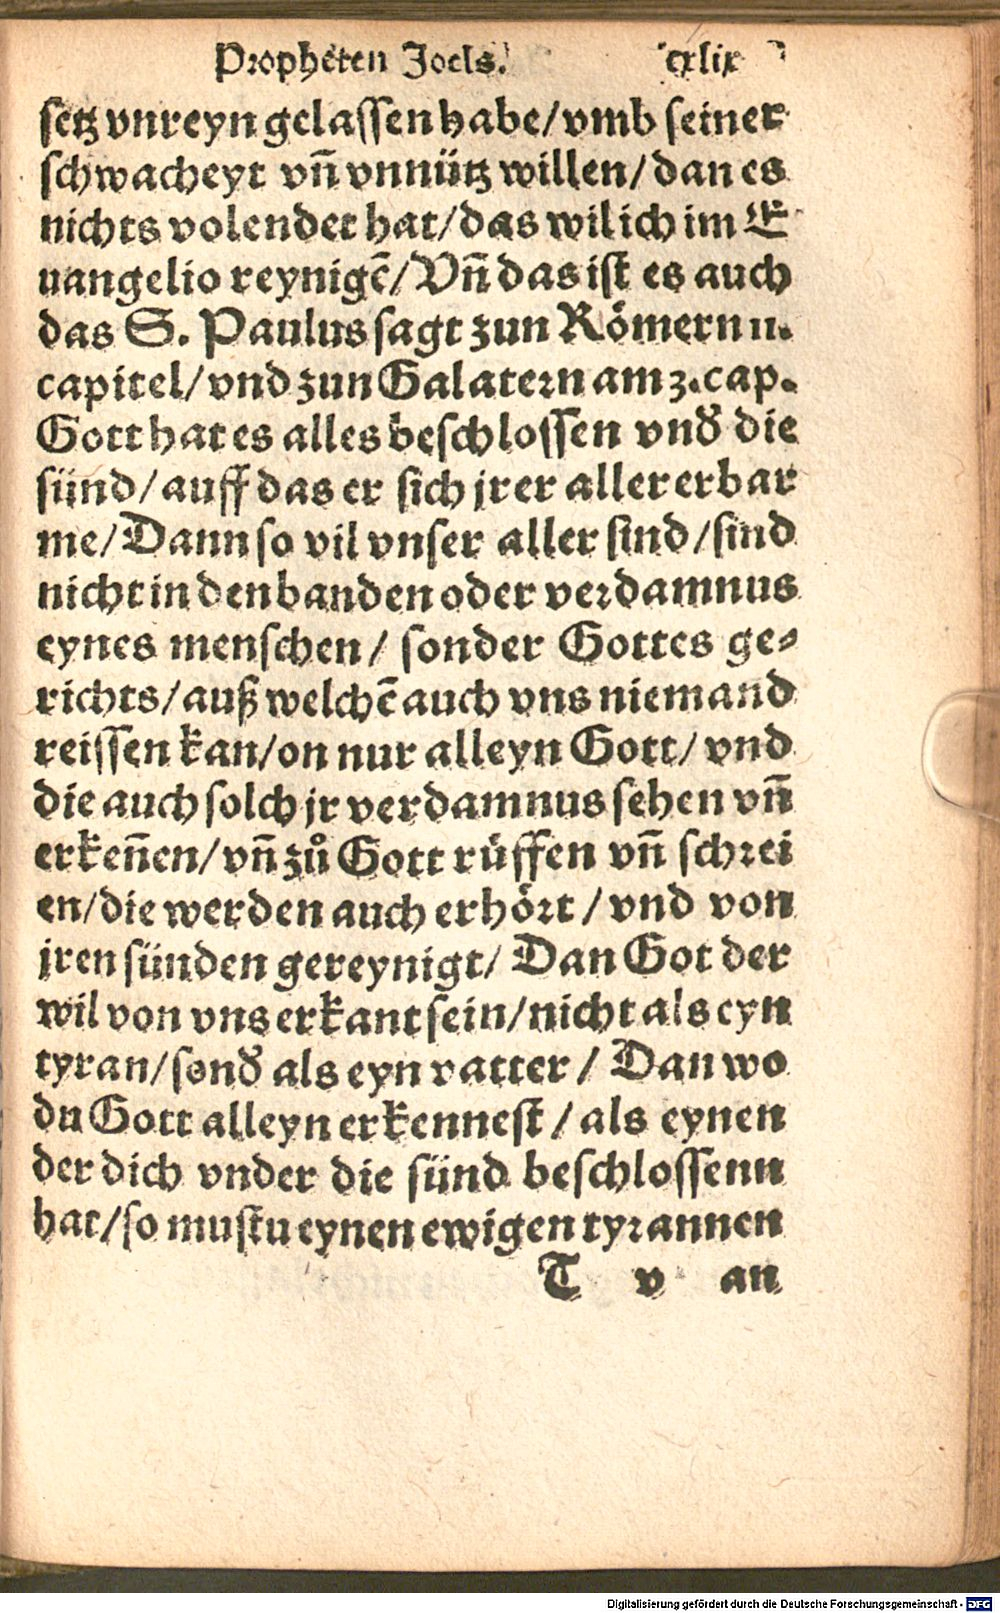 Propheten Joels. cxlix
setz vnreyn gelassen habe/vmb seiner
schwacheyt vñ vnnütz willen/dan es
nichts volendet hat/das wil ich im E
uangelio reynigē/Vñ das ist es auch
das S. Paulus sagt zun Römern 11.
capitel/vnd zun Galatern am 3. cap.
Gott hat es alles beschlossen vnd̕ die
sünd/auff das er sich jrer aller erbar
me/Dann so vil vnser aller sind/sind
nicht in den banden oder verdamnus
eynes menschen/ sonder Gottes ge⸗
richts/auß welchē auch vns niemand
reissen kan/on nur alleyn Gott/ vnd
die auch solch jr verdamnus sehen vñ
erkeñen/vñ zů Gott rüffen vñ schrei
en/die werden auch erhört/vnd von
jren sünden gereynigt/ Dan Got der
wil von vns erkant sein/nicht als eyn
tyran/sond̕ als eyn vatter/ Dan wo
du Gott alleyn erkennest/als eynen
der dich vnder die sünd beschlossenn
hat/so mustu eynen ewigen tyrannen
T v an
Digitalisierung gefördert durch die Deutsche Forschungsgemeinschaft - DFG